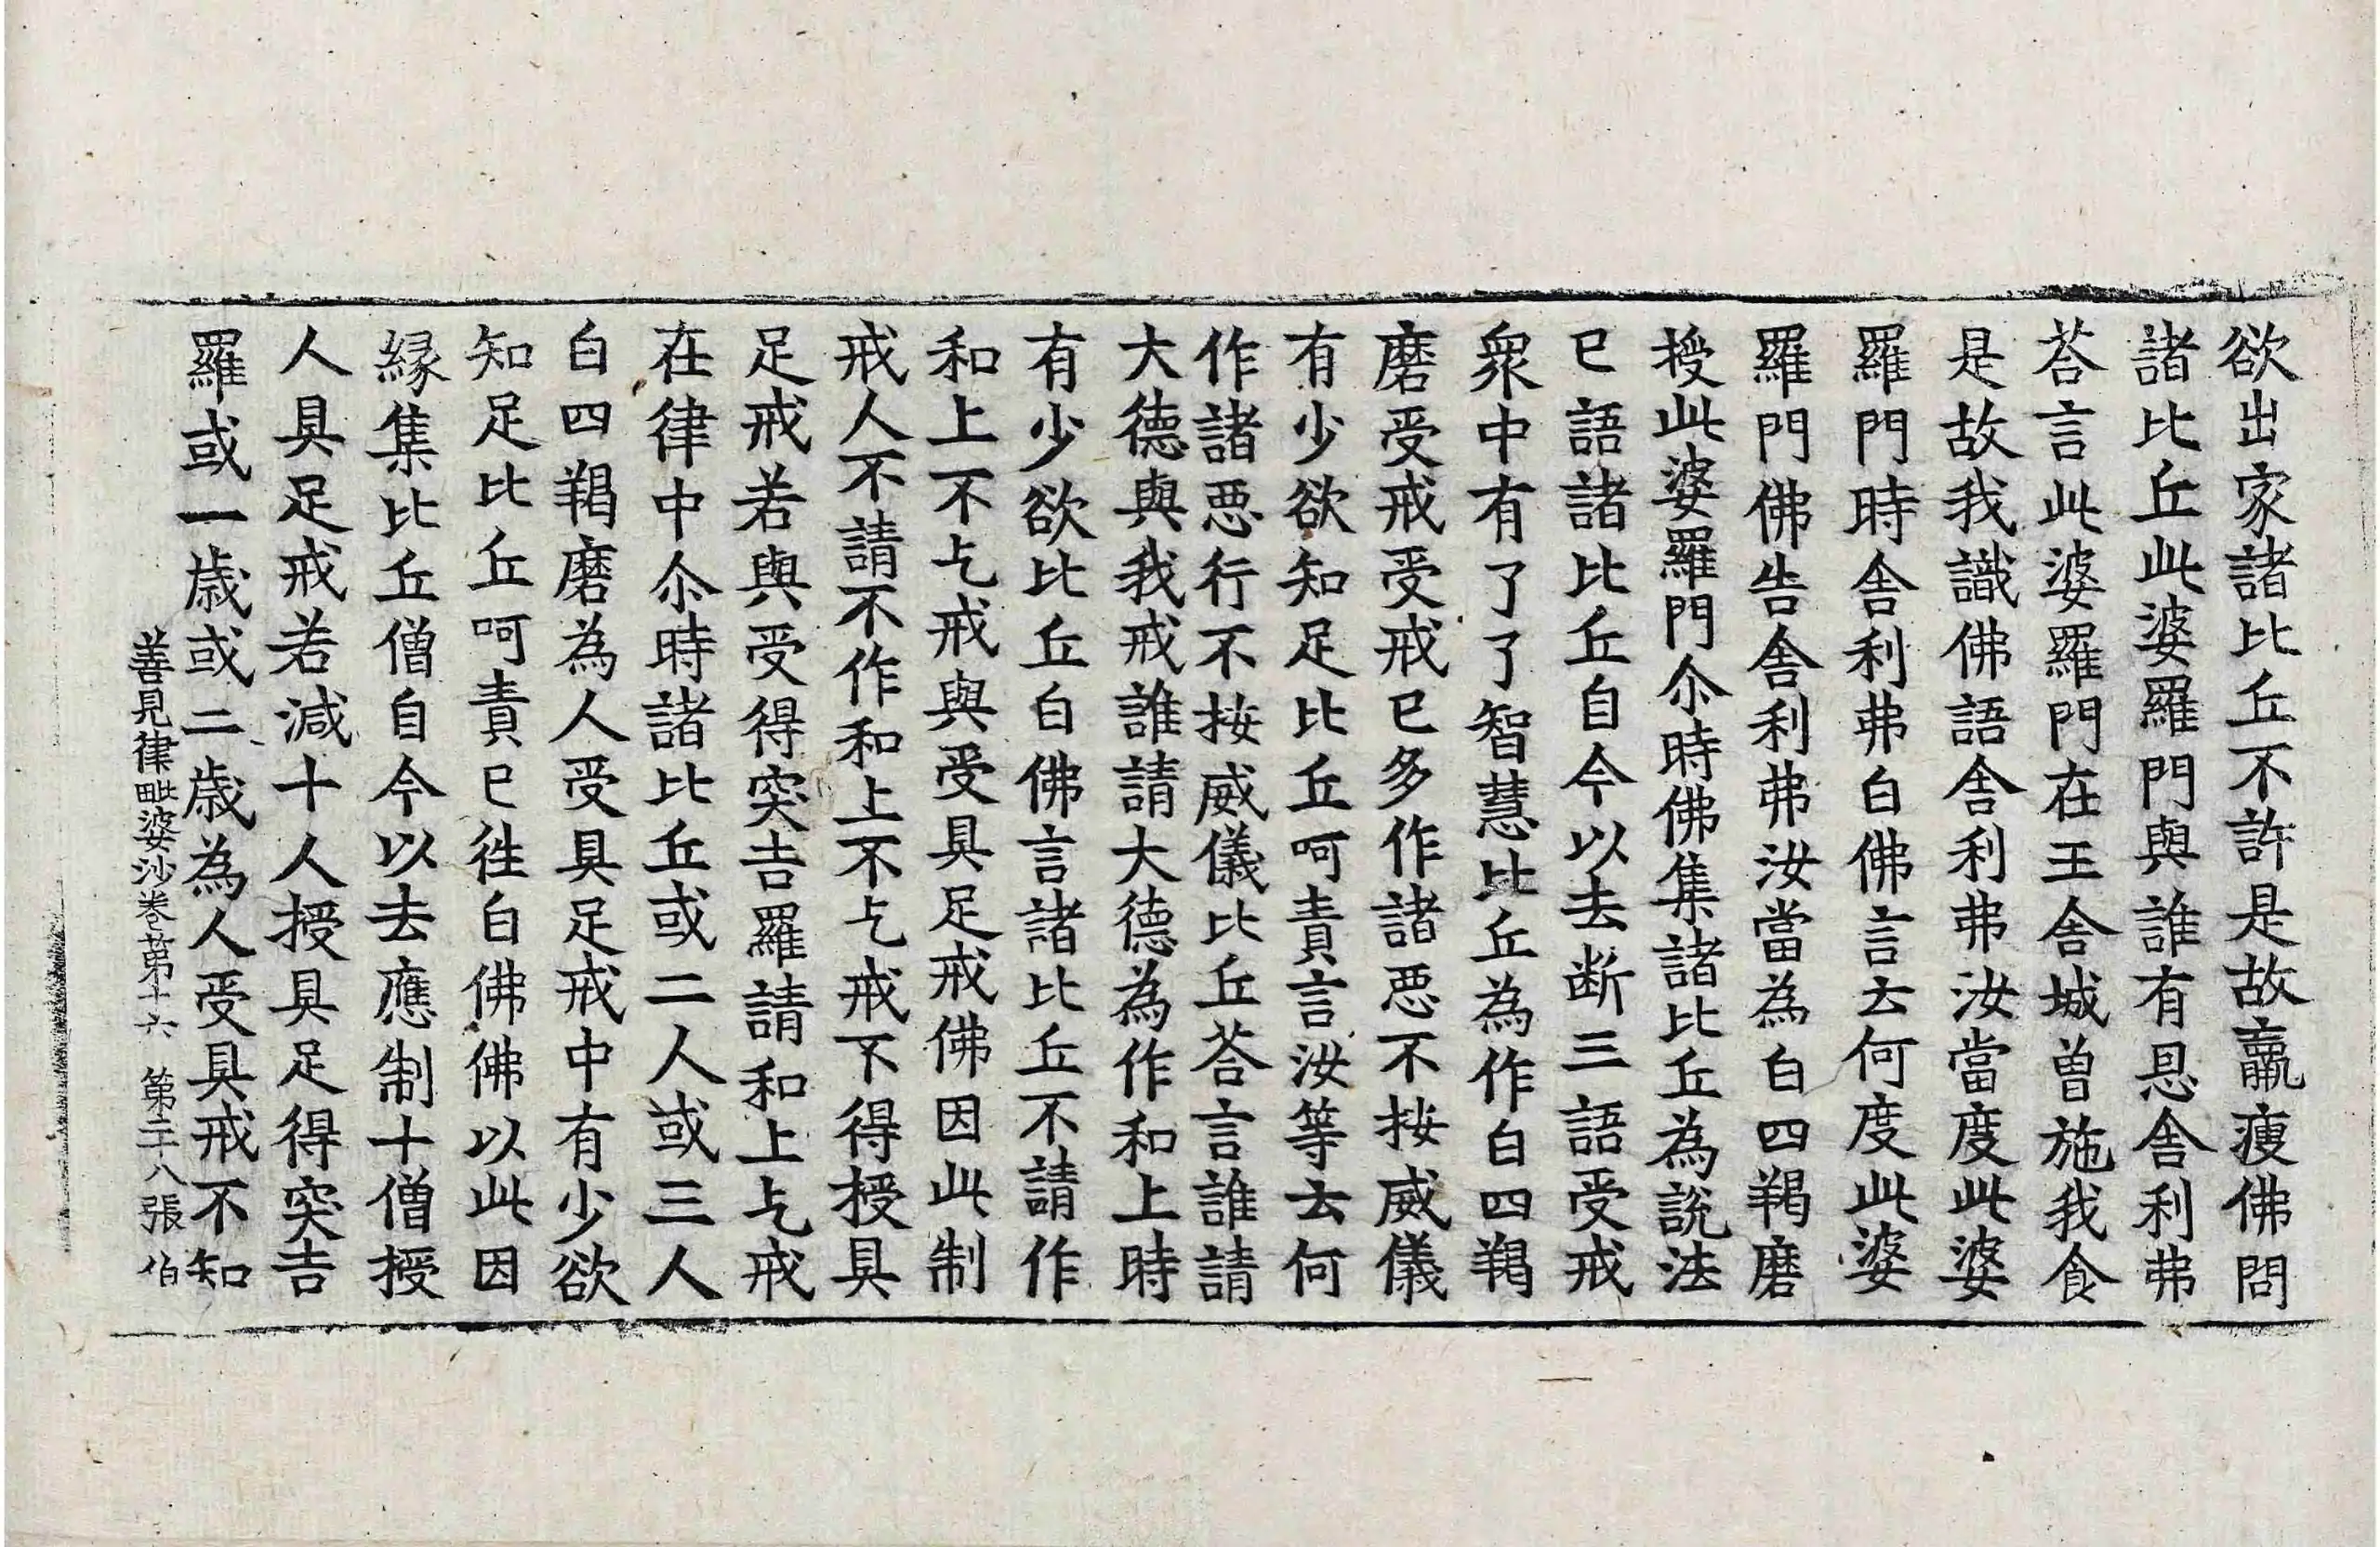 欲出家諸比丘不許是故羸瘦佛問
諸比丘此婆羅門與誰有恩舎利弗
荅言此婆羅門在王舎城曽施我食
是故我識佛語舎利弗汝當度此婆
羅門時舎利弗白佛言云何度此婆
羅門佛告舎利弗汝當為白四羯磨
授此婆羅門尒時佛集諸比丘為說法
已語諸比丘自今以去断三語受戒
衆中有了了智慧比丘為作白四羯
磨受戒受戒已多作諸悪不按威儀
有少欲知足比丘呵責言汝等云何
作諸悪行不按威儀比丘荅言誰請
大德與我戒誰請大德為作和上時
有少欲比丘白佛言諸比丘不請作
和上不乞戒與受具足戒佛因此制
戒人不請不作和上不乞戒不得授具
足戒若與受得突吉羅請和上乞戒
在律中尒時諸比丘或二人或三人
白四羯磨為人受具足戒中有少欲
知足比丘呵責已往白佛佛以此因
縁集比丘僧自今以去應制十僧授
人具足戒若減十人授具足得突吉
羅或一歳或二歳為人受具戒不知
善見律毗婆沙卷苐十六 第二十八張 伯